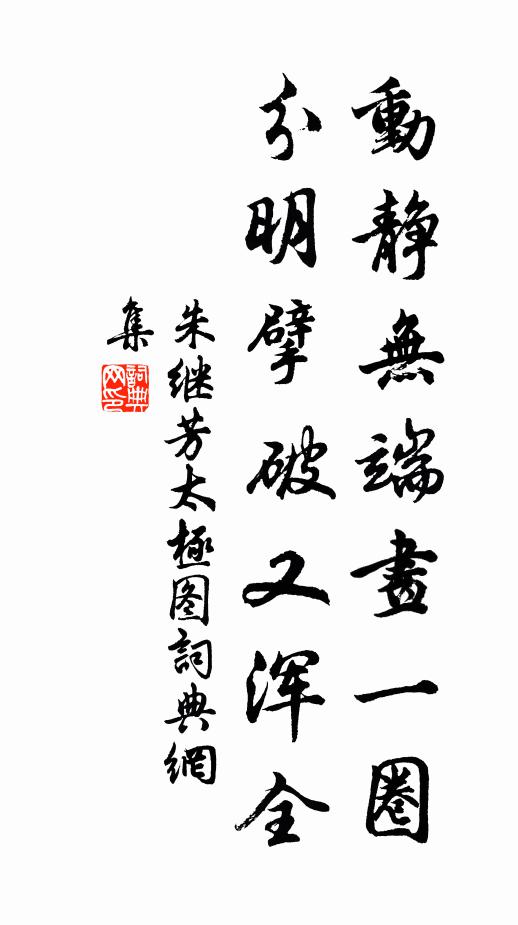 動静無端畫一圈
分明擘破又浑全
朱继芳太極图詞典網
集
詞典
网印